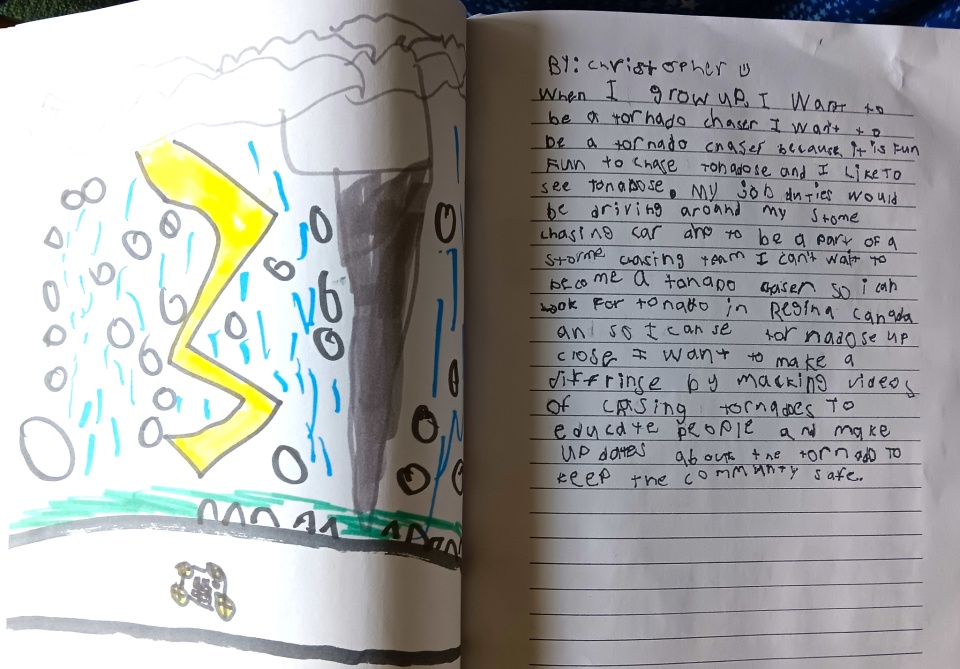 BY: christopher
When I grow up, I Want to
be a tornado chaser I want to
be a tornado chaser because it is Fun
Fun to chase tonadose and I Like TO
see tonadose. My job duties would
be driving around my stome
chasing car and to be a part of a
storme chasing team I can't wait to
become a tonado chaser so i can
look For tonatto in Regina Canada
an so I can se tornadose up
close I want to make a
diffringe by macking videos
of casing tornadoes To
educate people and make
up dates about the tornado to
keep the community safe.